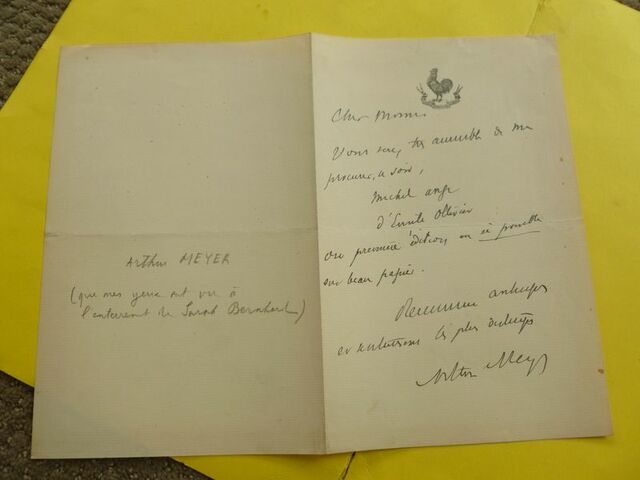 Arthur MEYER
(que mes yeux ont vu à
l'enterrement de Sarah Bernhardt)
Cher Monsieur
Vous serez très aimable de me
procurer, ce soir,
Michel ange
d'Emile Ollivier
en première édition ou si possible
sur beau papier.
anticipés
et salutations les plus distinguées
Arthur Meyer